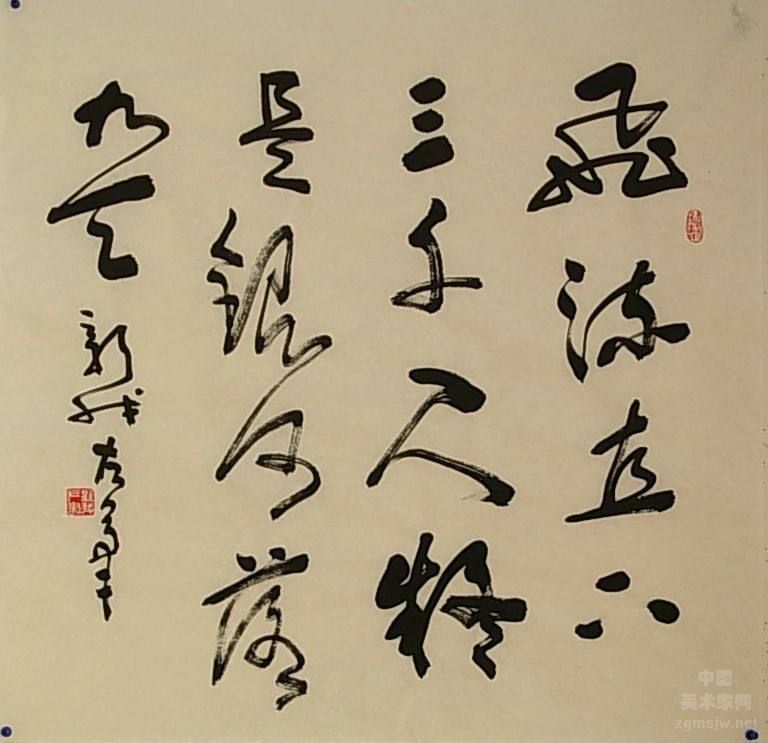 飛流直下
三千尺疑
是銀河落
九天
中国
美术家网
zgmsjw.net